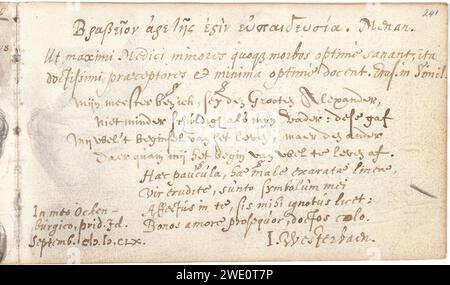 241
Βραβεῖον ἀρετῆς ἐστὶν εὐπαιδευσία. Menan.
Ut maximi Medici minores quoque morbos optimè sanant, ita
doctissimi præceptores et minima optimè docent. Eras. in Simil.
Mijn meester ben ick, seyd den Grooten Alexander,
niet minder schuldig als mijn vader: dese gaf
Mij wel 't beginsel van het leven, maer des ander
Daer quam mij het begin van wel te leven af.
Hæc paucula, hæ malè exaratæ lineæ,
Vir erudite, sunto symbolum mei
Affectus in te, sis mihi ignotus licet:
Bonos amore prosequor, doctos colo.
In mto Ocken-
burgico, prid. Id.
Septemb. CIↃ.IↃ.CLX.
I. Westerbaen.
alamy
Image ID: 2WE0T7P
www.alamy.com